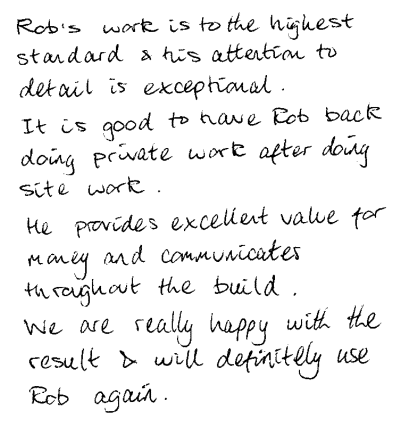 Rob's work is to the highest
standard & his attention to
detail is exceptional.
It is good to have Rob back
doing private work after doing
site work.
He provides excellent value for
money and communicates
throughout the build.
We are really happy with the
result & will definitely use
Rob again.